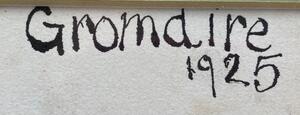 Gromaire
1925